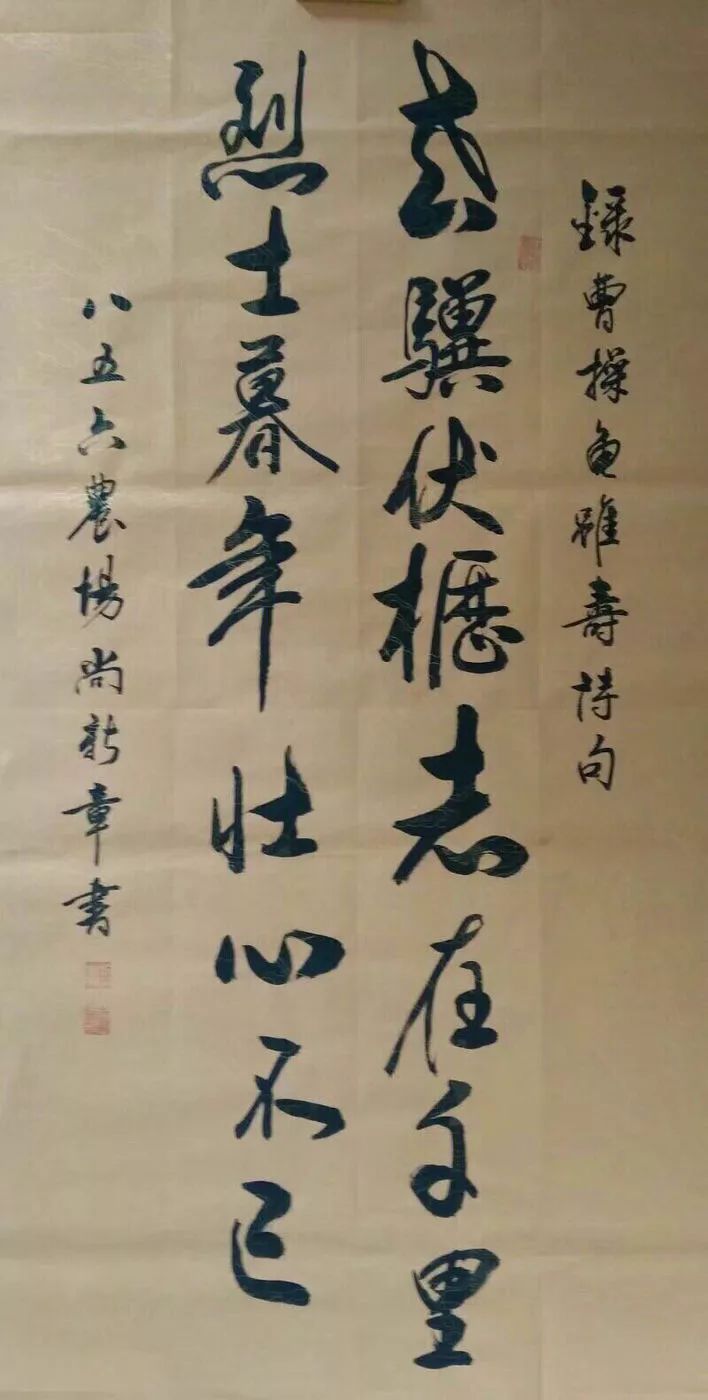 錄曹操龜雖壽詩句
老驥伏櫪志在千里
烈士暮年壮心不已
八五六農場尚新章書